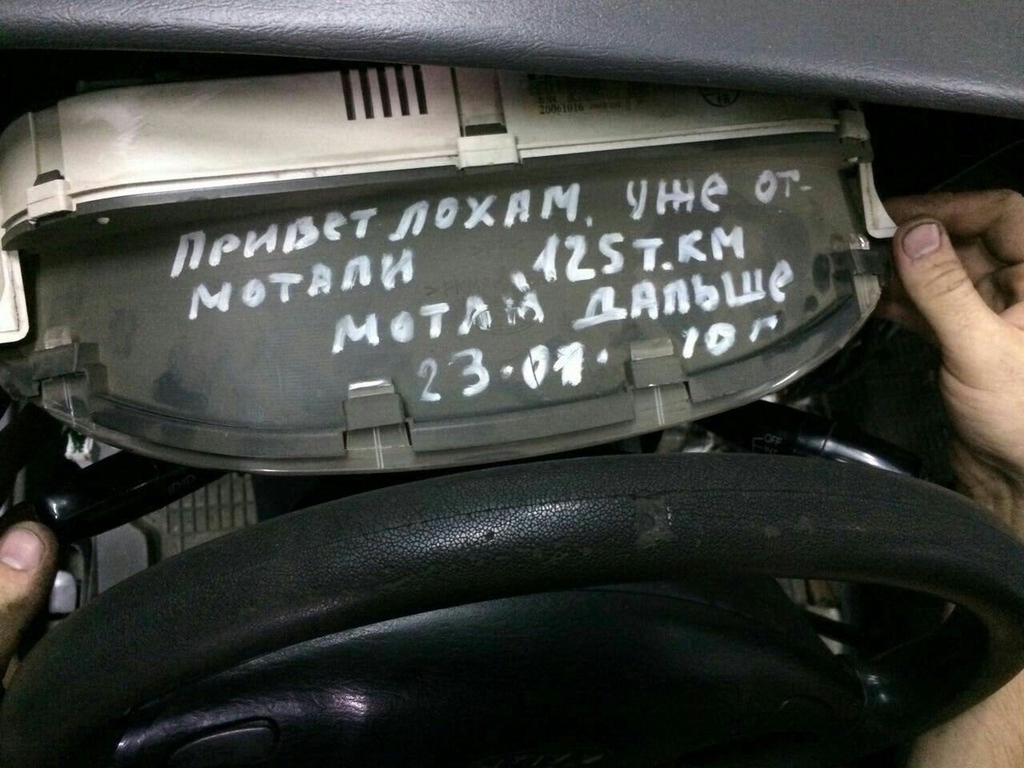 20061016
ПРИВЕТ ЛОХАМ. УЖЕ ОТ-
МОТАЛИ 125 Т.КМ
МОТАЙ ДАЛЬШЕ
23.01. 10 г
OFF